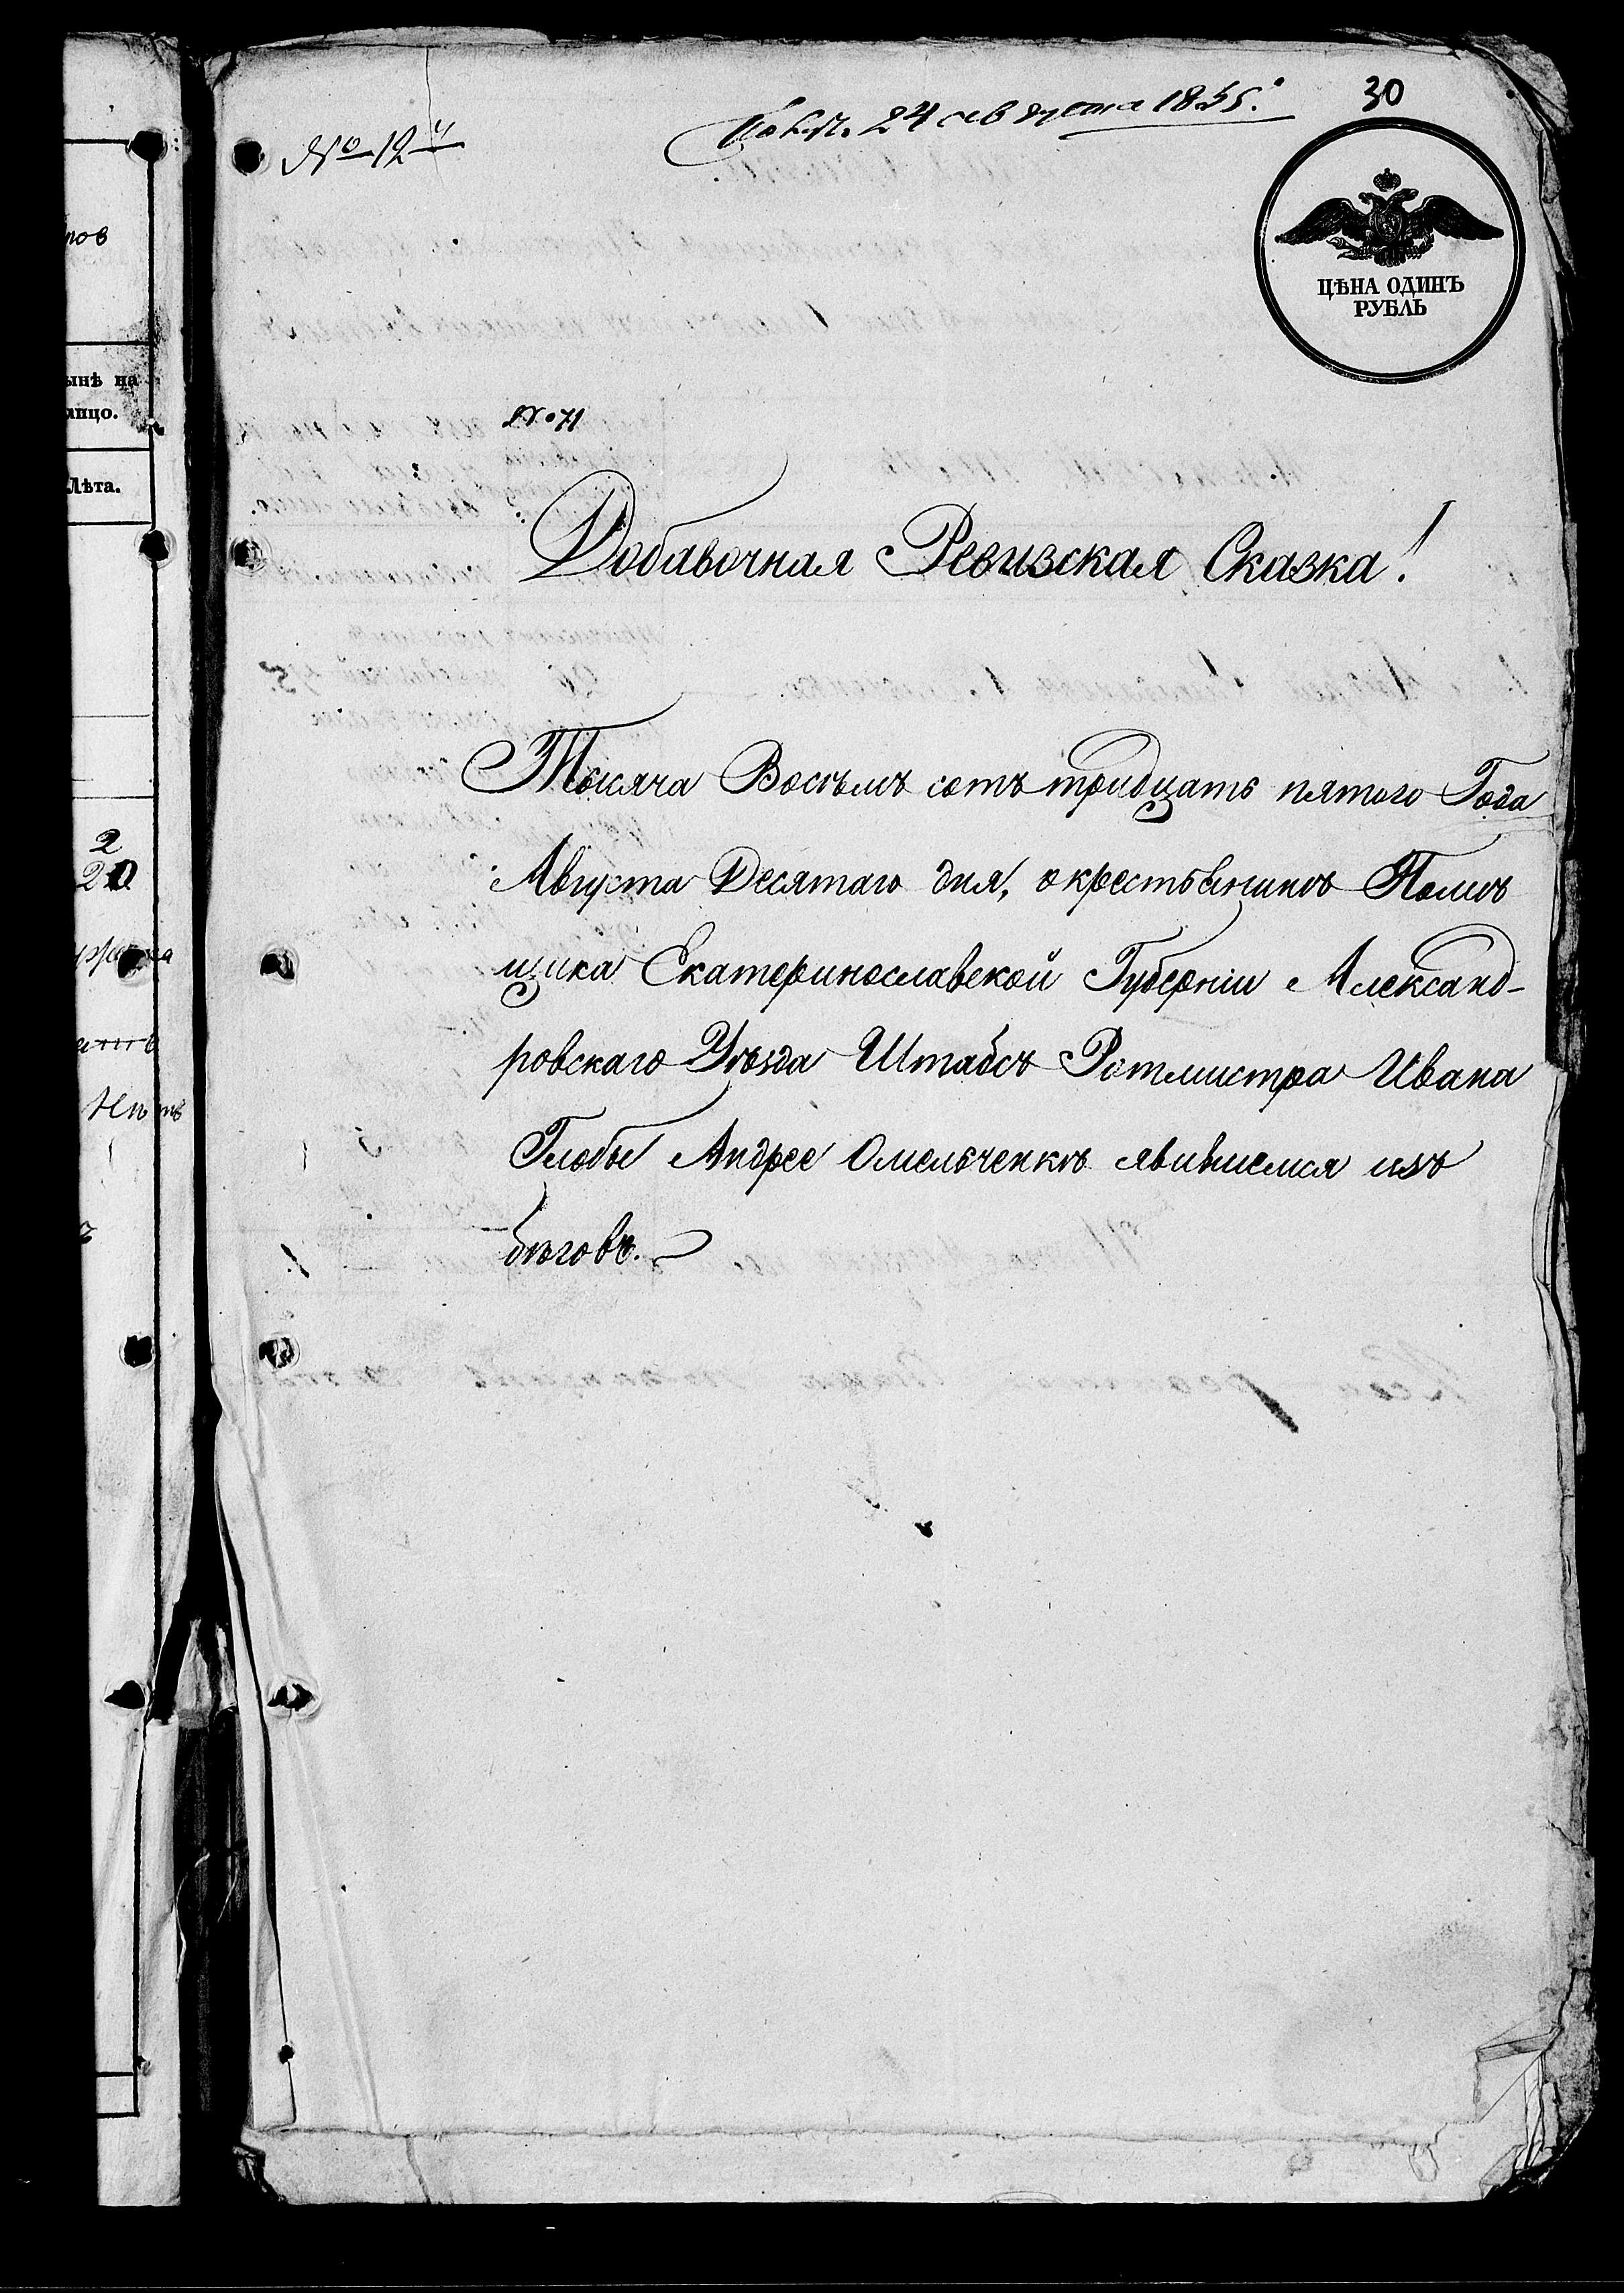 30
24 августа 1835.
№ 12й
ЦѢНА ОДИНЪ
РУБЛЬ
№ 71
Добавочная Ревизская Сказка!
Тысяча Восемъ сотъ тридцать пятого Года
Августа Десятаго дня, о крестьянинѣ Помѣ
щика Екатеринославской Губерніи Александ-
ровскаго Уѣзда Штабсъ Ротмистра Ивана
Глобы Андрее Омельченкѣ явившемся изъ
бѣговъ.
ынѣ на
лицо.
Лѣта.
2
20